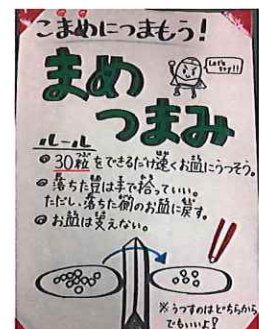 こまめにつまもう!
Let's try!!
まめ
つまみ
ルール
◎30粒をできるだけ速くお皿にうつそう。
◎落ちた豆は手で拾っていい。
ただし、落ちた側のお皿に戻す。
◎お皿は支えない。
※うつすのはどちらから
でもいいよ!